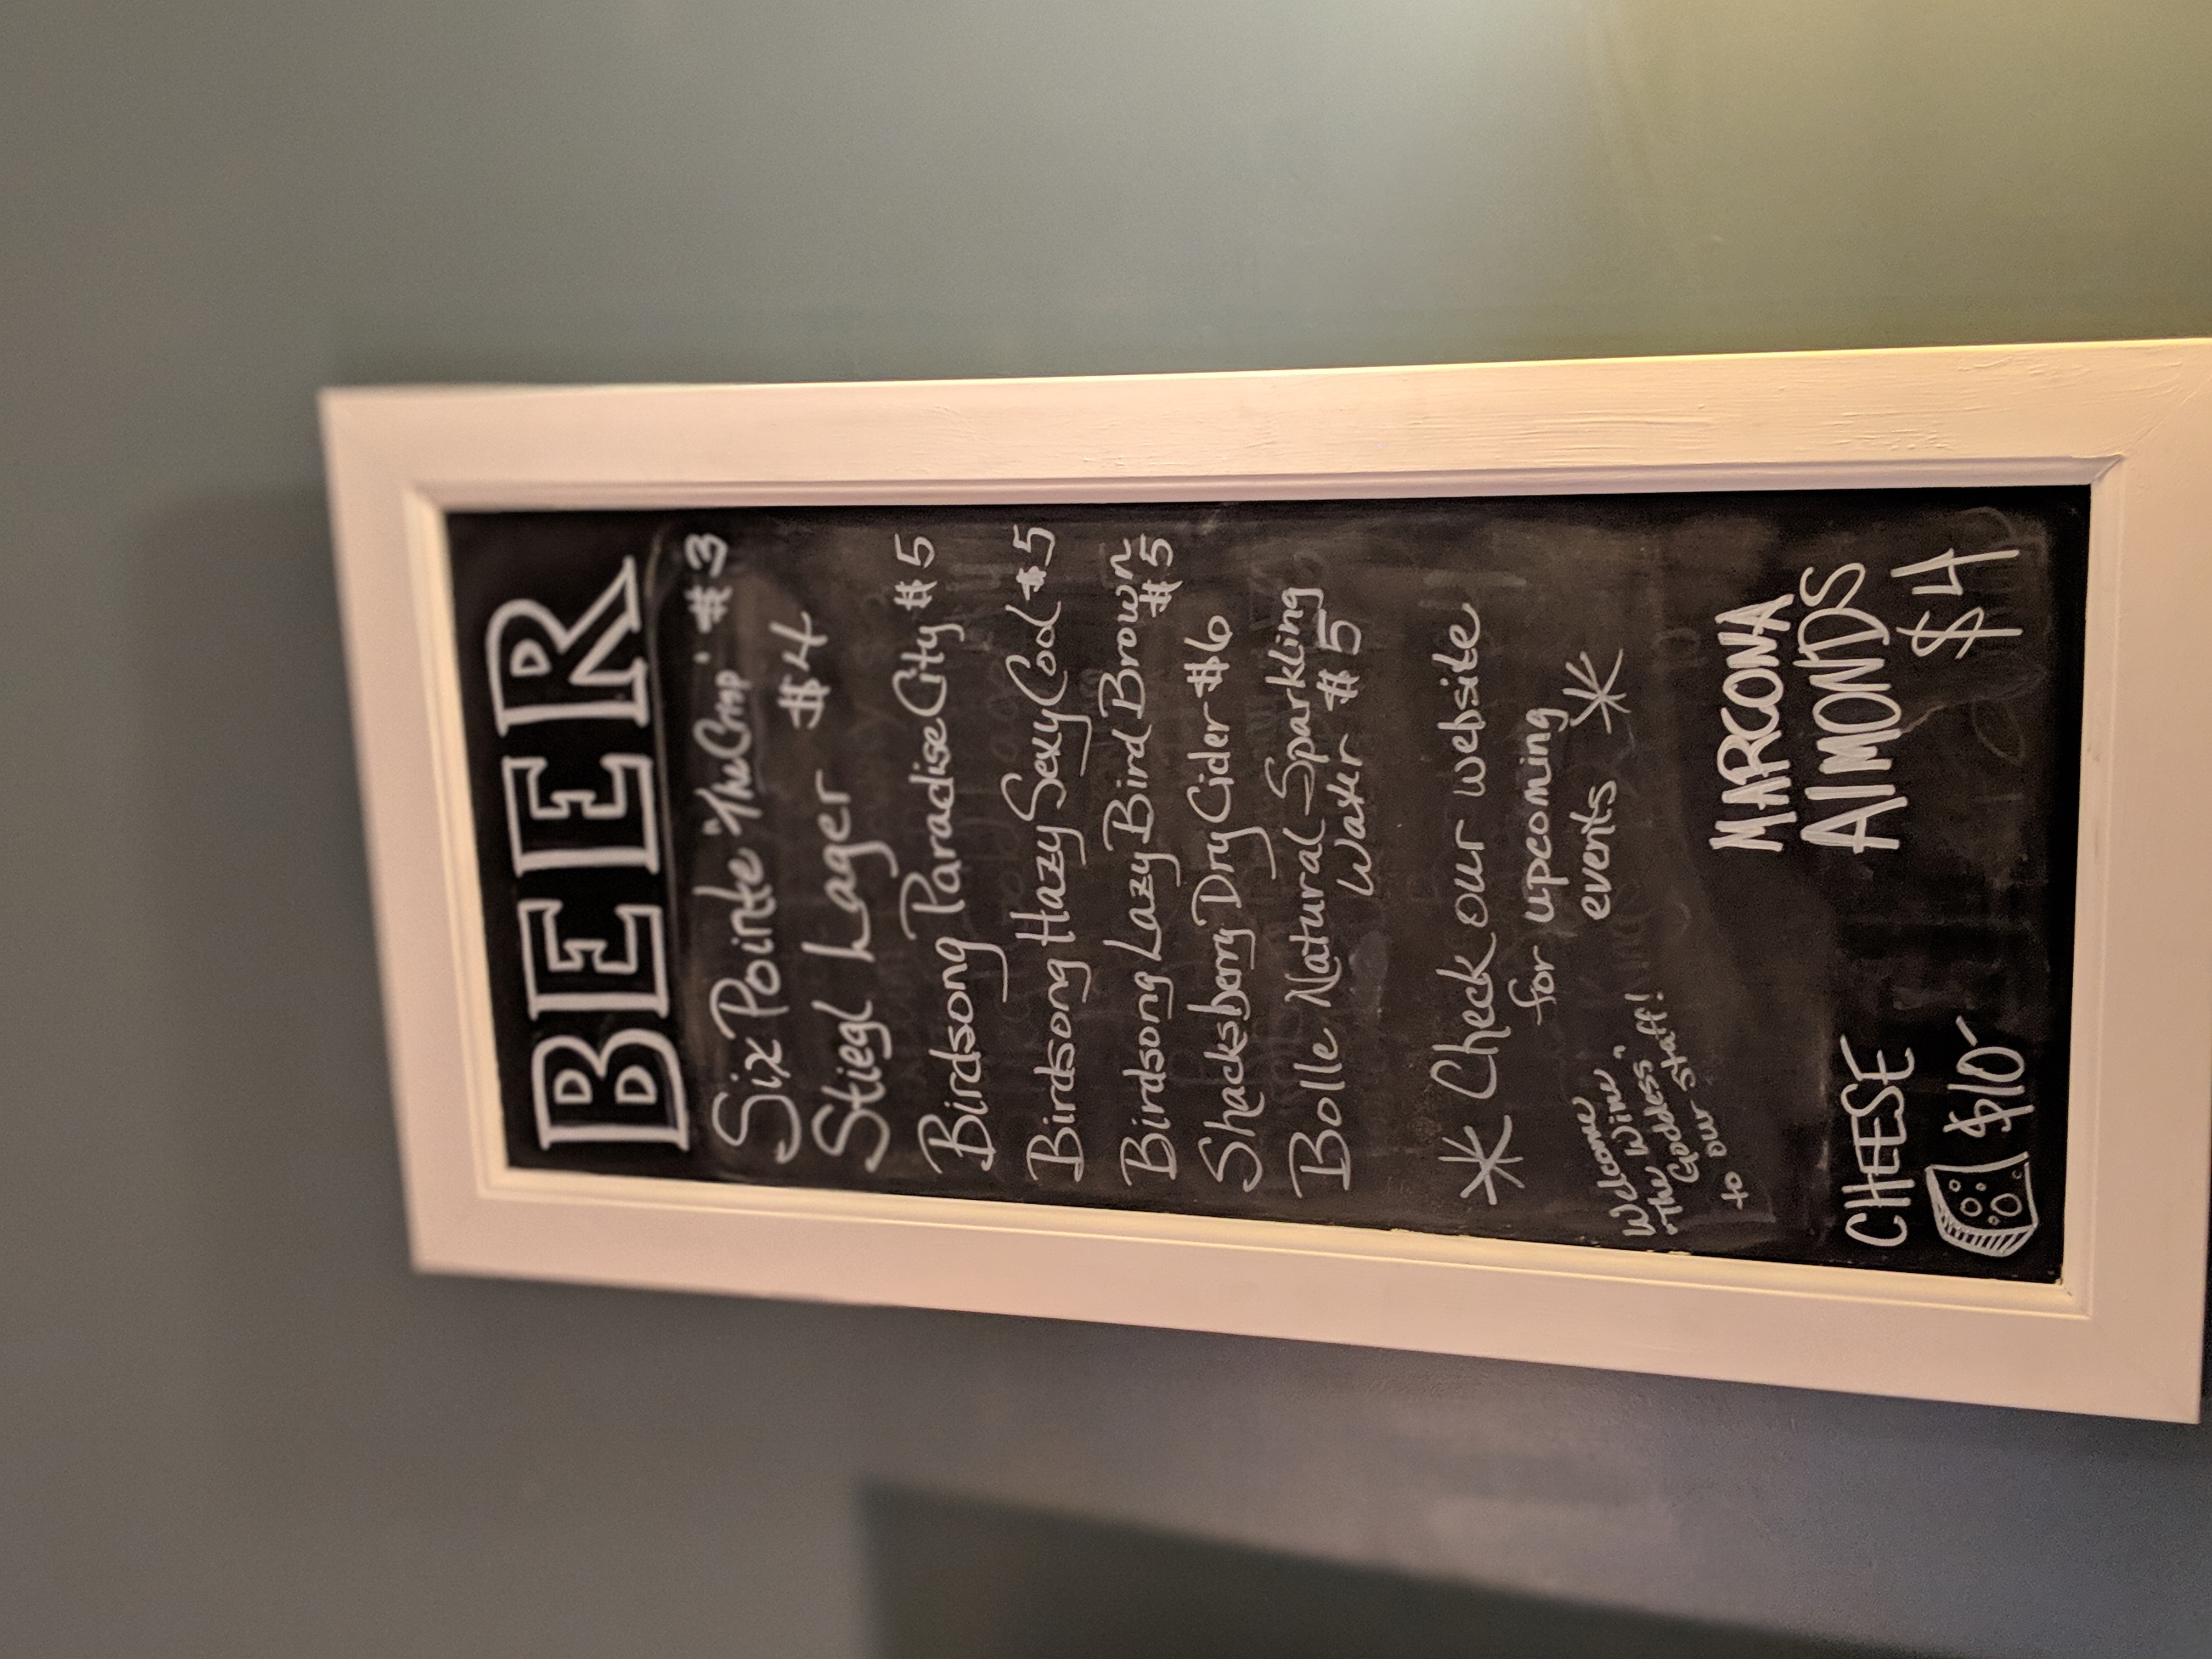 BEER
Six Pointe "The Crisp" $3
Stiegl Lager $4
Birdsong Paradise City $5
Birdsong Hazy Sexy Cool $5
Birdsong Lazy Bird Brown
$5
Shacksbury Dry Cider $6
Bolle Natural Sparkling
Water $5
* Check our website
for upcoming
events *
Welcome
"The Wine
Goddess"
to our staff!
MARCONA
AlMONDS
$4
CHEESE
$10-